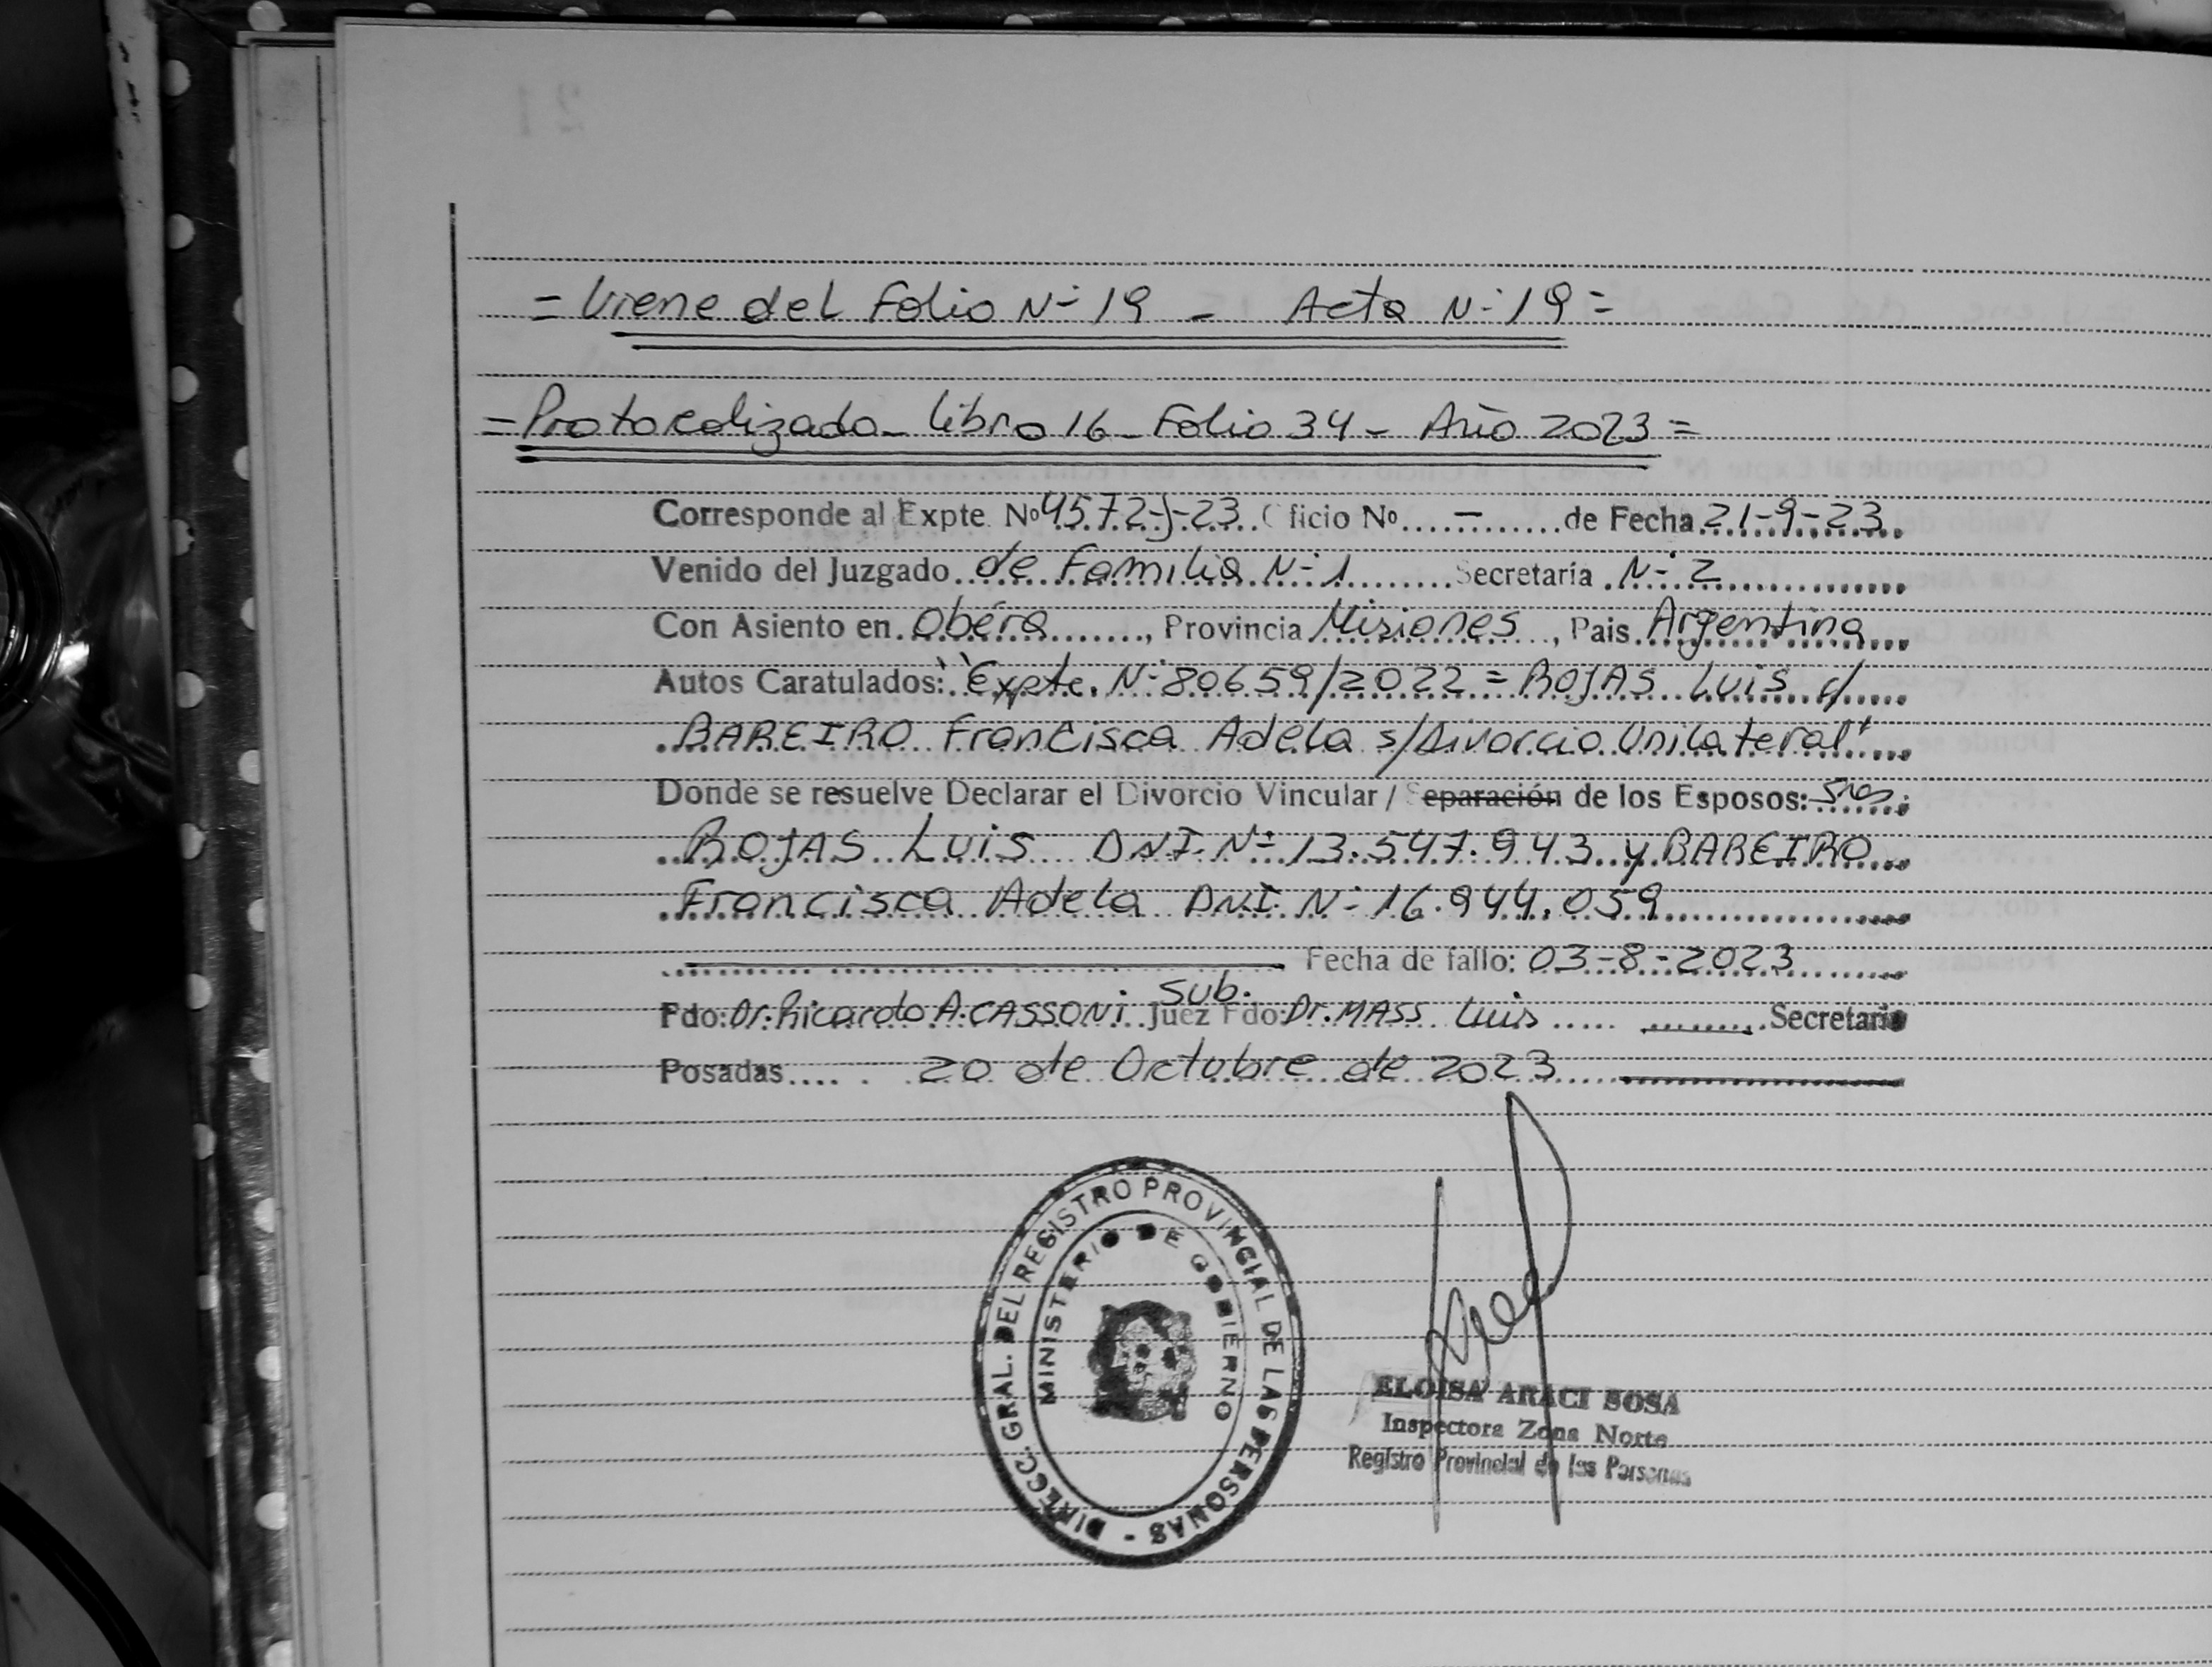 = Viene del Folio Nº 19 - Acta Nº 19 =
= Protocolizado - Libro 16 - Folio 34 - Año 2023 =
Corresponde al Expte. Nº 4572-J-23 Oficio Nº.....-.......de Fecha 21-9-23
Venido del Juzgado de Familia Nº 1 Secretaría Nº 2
Con Asiento en Oberá, Provincia Misiones, Pais Argentina
Autos Caratulados: "Expte. Nº 80659/2022 = ROJAS Luis c/
BAREIRO Francisca Adela s/Divorcio Unilateral"
Donde se resuelve Declarar el Divorcio Vincular / Separación de los Esposos: Sres.
ROJAS Luis DNI. Nº 13.547.943 y BAREIRO
Francisca Adela DNI Nº 16.944.059
Fecha de fallo: 03-8-2023
Sub.
Fdo: Dr. Ricardo A. CASSONI Juez Fdo: Dr. MASS Luis Secretario
Posadas 20 de Octubre de 2023
DIRECC. GRAL. DEL REGISTRO PROVINCIAL DE LAS PERSONAS -
MINISTERIO DE GOBIERNO
ELOISA ARACI SOSA
Inspectora Zona Norte
Registro Provincial de las Personas